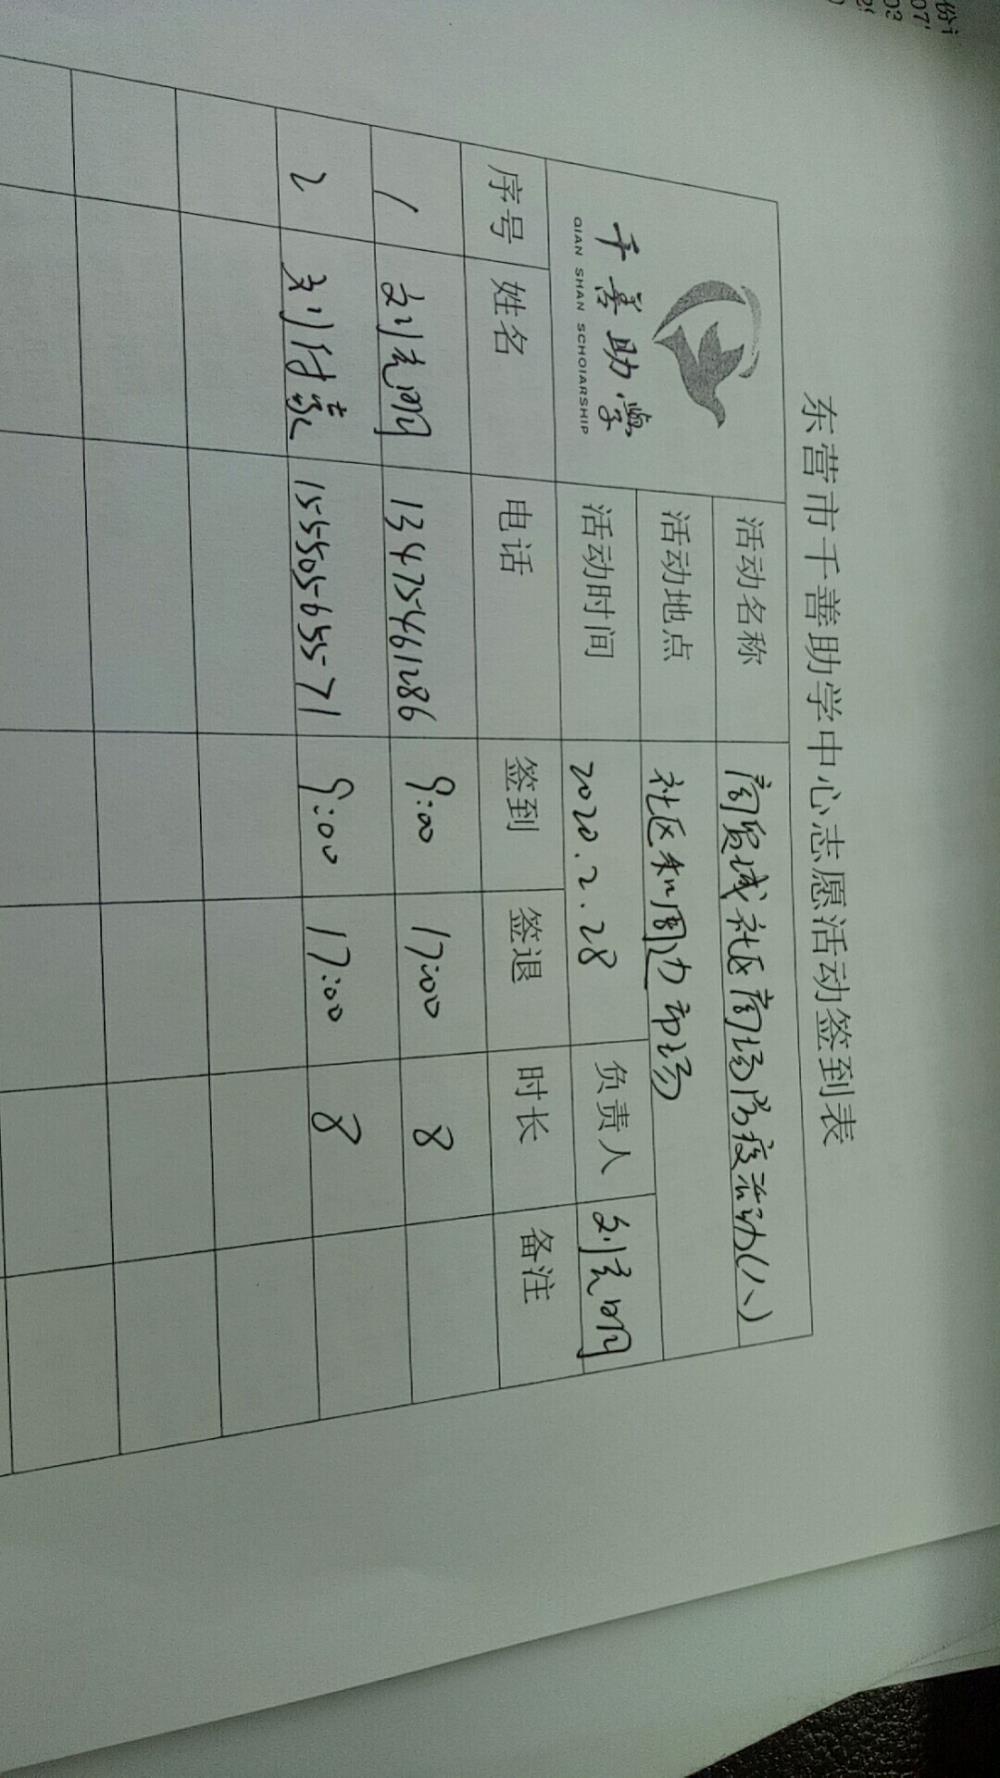 东营市千善助学中心志愿活动签到表
千善助学
QIAN SHAN SCHOIARSHIP
活动名称 商贸城社区商场防疫活动(八)
活动地点 社区和周边市场
活动时间 2020.2.28 负责人 刘克明
序号 姓名 电话 签到 签退 时长 备注
1 刘克明 13475461286 9:00 17:00 8
2 刘付 15550565571 9:00 17:00 8